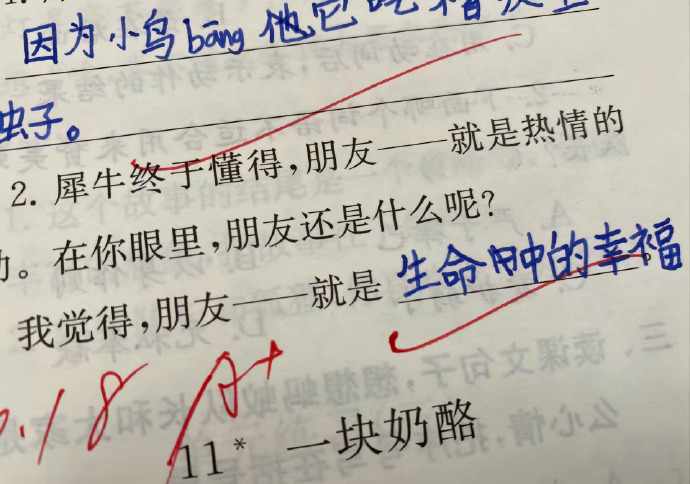 因为小鸟bāng他它吃
虫子。
2. 犀牛终于懂得,朋友——就是热情的
。在你眼里,朋友还是什么呢?
我觉得,朋友——就是 生命中的幸福。
.18 A+
11* 一块奶酪